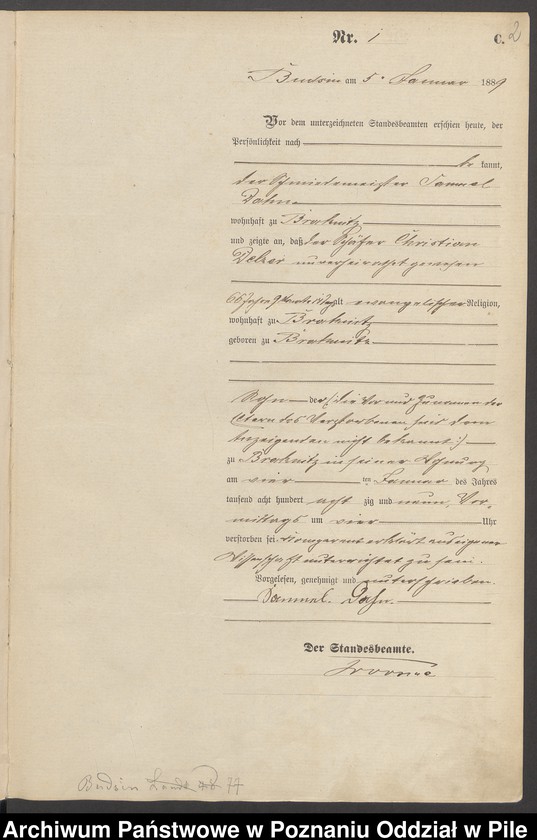 Nr. 1
C. 2
Budsin am 5. Januar 1889
Vor dem unterzeichneten Standesbeamten erschien heute, der
Persönlichkeit nach
be kannt,
der Schmiedemeister Samuel
wohnhaft zu Brodnitz
und zeigte an, daß der Schäfer Christian
unverheirathet gewesen
66 Jahre 9 Monate alt evangelischer Religion,
wohnhaft zu Brodnitz
geboren zu Brodnitz
Sohn der (: die Vor und Zunamen der
Eltern des Verstorbenen sind dem
Anzeigenden nicht bekannt :)
zu Brodnitz in seiner Wohnung
am vier ten Januar des Jahres
tausend acht hundert acht zig und neun, Vor-
mittags um vier Uhr
verstorben sei. Comparent erklärt aus eigener
Wissenschaft unterrichtet zu sein.
Vorgelesen, genehmigt und unterschrieben.
Samuel Dahn.
Der Standesbeamte.
Budsin Land 77
Archiwum Państwowe w Poznaniu Oddział w Pile